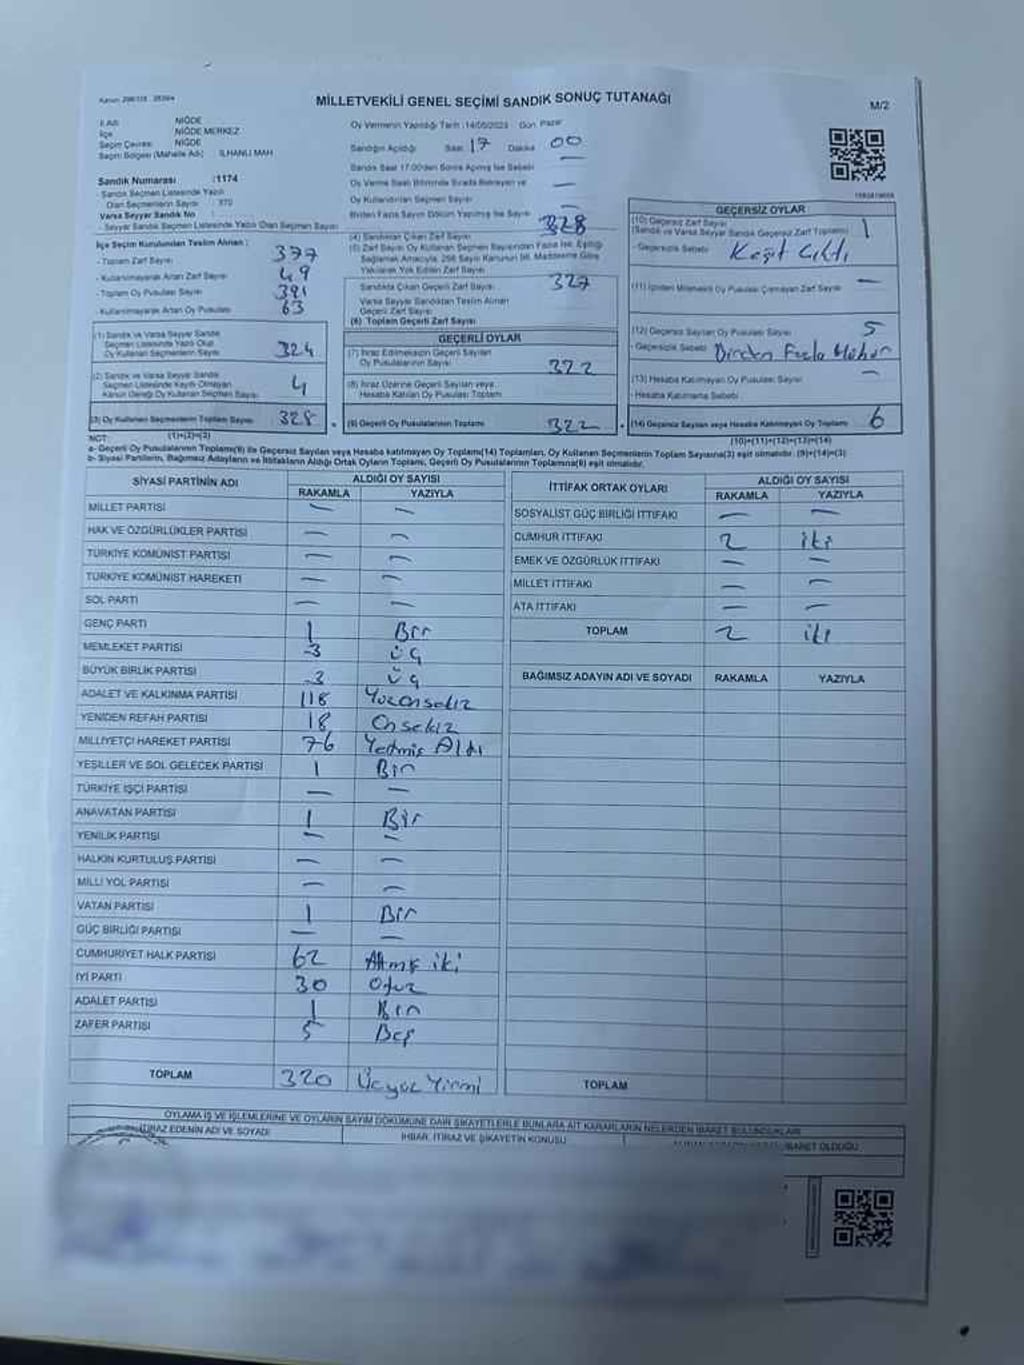 MİLLETVEKİLİ GENEL SEÇİMİ SANDIK SONUÇ TUTANAĞI
M/2
İl Adı : NİĞDE
İlçe : NİĞDE MERKEZ
Seçim Çevresi : NİĞDE
Seçim Bölgesi (Mahalle Adı) : İLHANLI MAH
Sandık Numarası : 1174
- Sandık Seçmen Listesinde Yazılı
Olan Seçmenlerin Sayısı : 370
Varsa Seyyar Sandık No :
- Seyyar Sandık Seçmen Listesinde Yazılı Olan Seçmen Sayısı
Oy Vermenin Yapıldığı Tarih : 14/05/2023 Gün: Pazar
Sandığın Açıldığı Saat 17 Dakika 00
Sandık Saat 17:00'den Sonra Açılmış İse Sebebi —
Oy Verme Saati Bitiminde Sırada Bekleyen ve
Oy Kullandırılan Seçmen Sayısı —
Birden Fazla Sayım Döküm Yapılmış İse Sayısı —
İlçe Seçim Kurulundan Teslim Alınan :
- Toplam Zarf Sayısı 377
- Kullanılmayarak Artan Zarf Sayısı 49
- Toplam Oy Pusulası Sayısı 391
- Kullanılmayarak Artan Oy Pusulası 63
(1) Sandık ve Varsa Seyyar Sandık
Seçmen Listesinde Yazılı Olup
Oy Kullanan Seçmenlerin Sayısı 324
(2) Sandık ve Varsa Seyyar Sandık
Seçmen Listesinde Kayıtlı Olmayan
Kanun Gereği Oy Kullanan Seçmen Sayısı 4
(3) Oy Kullanan Seçmenlerin Toplam Sayısı 328
(1)+(2)=(3)
(4) Sandıktan Çıkan Zarf Sayısı 328
(5) Zarf Sayısı Oy Kullanan Seçmen Sayısından Fazla İse, Eşitliği
Sağlamak Amacıyla, 298 Sayılı Kanunun 98. Maddesine Göre
Yakılarak Yok Edilen Zarf Sayısı
Sandıkta Çıkan Geçerli Zarf Sayısı 327
Varsa Seyyar Sandıktan Teslim Alınan
Geçerli Zarf Sayısı
(6) Toplam Geçerli Zarf Sayısı
GEÇERLİ OYLAR
(7) İtiraz Edilmeksizin Geçerli Sayılan
Oy Pusulalarının Sayısı 322
(8) İtiraz Üzerine Geçerli Sayılan veya
Hesaba Katılan Oy Pusulası Toplamı
(9) Geçerli Oy Pusulalarının Toplamı 322
GEÇERSİZ OYLAR
(10) Geçersiz Zarf Sayısı
(Sandık ve Varsa Seyyar Sandık Geçersiz Zarf Toplamı) 1
- Geçersizlik Sebebi Kağıt Çıktı
(11) İçinden Milletvekili Oy Pusulası Çıkmayan Zarf Sayısı —
(12) Geçersiz Sayılan Oy Pusulası Sayısı 5
- Geçersizlik Sebebi Birden Fazla Mühür
(13) Hesaba Katılmayan Oy Pusulası Sayısı —
- Hesaba Katılmama Sebebi
(14) Geçersiz Sayılan veya Hesaba Katılmayan Oy Toplamı 6
(10)+(11)+(12)+(13)=(14)
NOT:
a- Geçerli Oy Pusulalarının Toplamı(9) ile Geçersiz Sayılan veya Hesaba katılmayan Oy Toplamı(14) Toplamları, Oy Kullanan Seçmenlerin Toplam Sayısına(3) eşit olmalıdır. (9)+(14)=(3)
b- Siyasi Partilerin, Bağımsız Adayların ve İttifakların Aldığı Ortak Oyların Toplamı, Geçerli Oy Pusulalarının Toplamına(9) eşit olmalıdır.
SİYASİ PARTİNİN ADI ALDIĞI OY SAYISI
RAKAMLA YAZIYLA
MİLLET PARTİSİ — —
HAK VE ÖZGÜRLÜKLER PARTİSİ — —
TÜRKİYE KOMÜNİST PARTİSİ — —
TÜRKİYE KOMÜNİST HAREKETİ — —
SOL PARTİ — —
GENÇ PARTİ 1 Bir
MEMLEKET PARTİSİ 3 Üç
BÜYÜK BİRLİK PARTİSİ 3 Üç
ADALET VE KALKINMA PARTİSİ 118 Yüzonsekiz
YENİDEN REFAH PARTİSİ 18 Onsekiz
MİLLİYETÇİ HAREKET PARTİSİ 76 Yetmiş Altı
YEŞİLLER VE SOL GELECEK PARTİSİ 1 Bir
TÜRKİYE İŞÇİ PARTİSİ — —
ANAVATAN PARTİSİ 1 Bir
YENİLİK PARTİSİ — —
HALKIN KURTULUŞ PARTİSİ — —
MİLLİ YOL PARTİSİ — —
VATAN PARTİSİ 1 Bir
GÜÇ BİRLİĞİ PARTİSİ — —
CUMHURİYET HALK PARTİSİ 62 Altmış iki
İYİ PARTİ 30 Otuz
ADALET PARTİSİ 1 Bir
ZAFER PARTİSİ 5 Beş
TOPLAM 320 Üçyüz Yirmi
İTTİFAK ORTAK OYLARI ALDIĞI OY SAYISI
RAKAMLA YAZIYLA
SOSYALİST GÜÇ BİRLİĞİ İTTİFAKI — —
CUMHUR İTTİFAKI 2 iki
EMEK VE ÖZGÜRLÜK İTTİFAKI — —
MİLLET İTTİFAKI — —
ATA İTTİFAKI — —
TOPLAM 2 iki
BAĞIMSIZ ADAYIN ADI VE SOYADI RAKAMLA YAZIYLA
TOPLAM
OYLAMA İŞ VE İŞLEMLERİNE VE OYLARIN SAYIM DÖKÜMÜNE DAİR ŞİKAYETLERLE BUNLARA AİT KARARLARIN NELERDEN İBARET BULUNDUKLARI
İTİRAZ EDENİN ADI VE SOYADI
İHBAR, İTİRAZ VE ŞİKAYETİN KONUSU
İBARET OLDUĞU